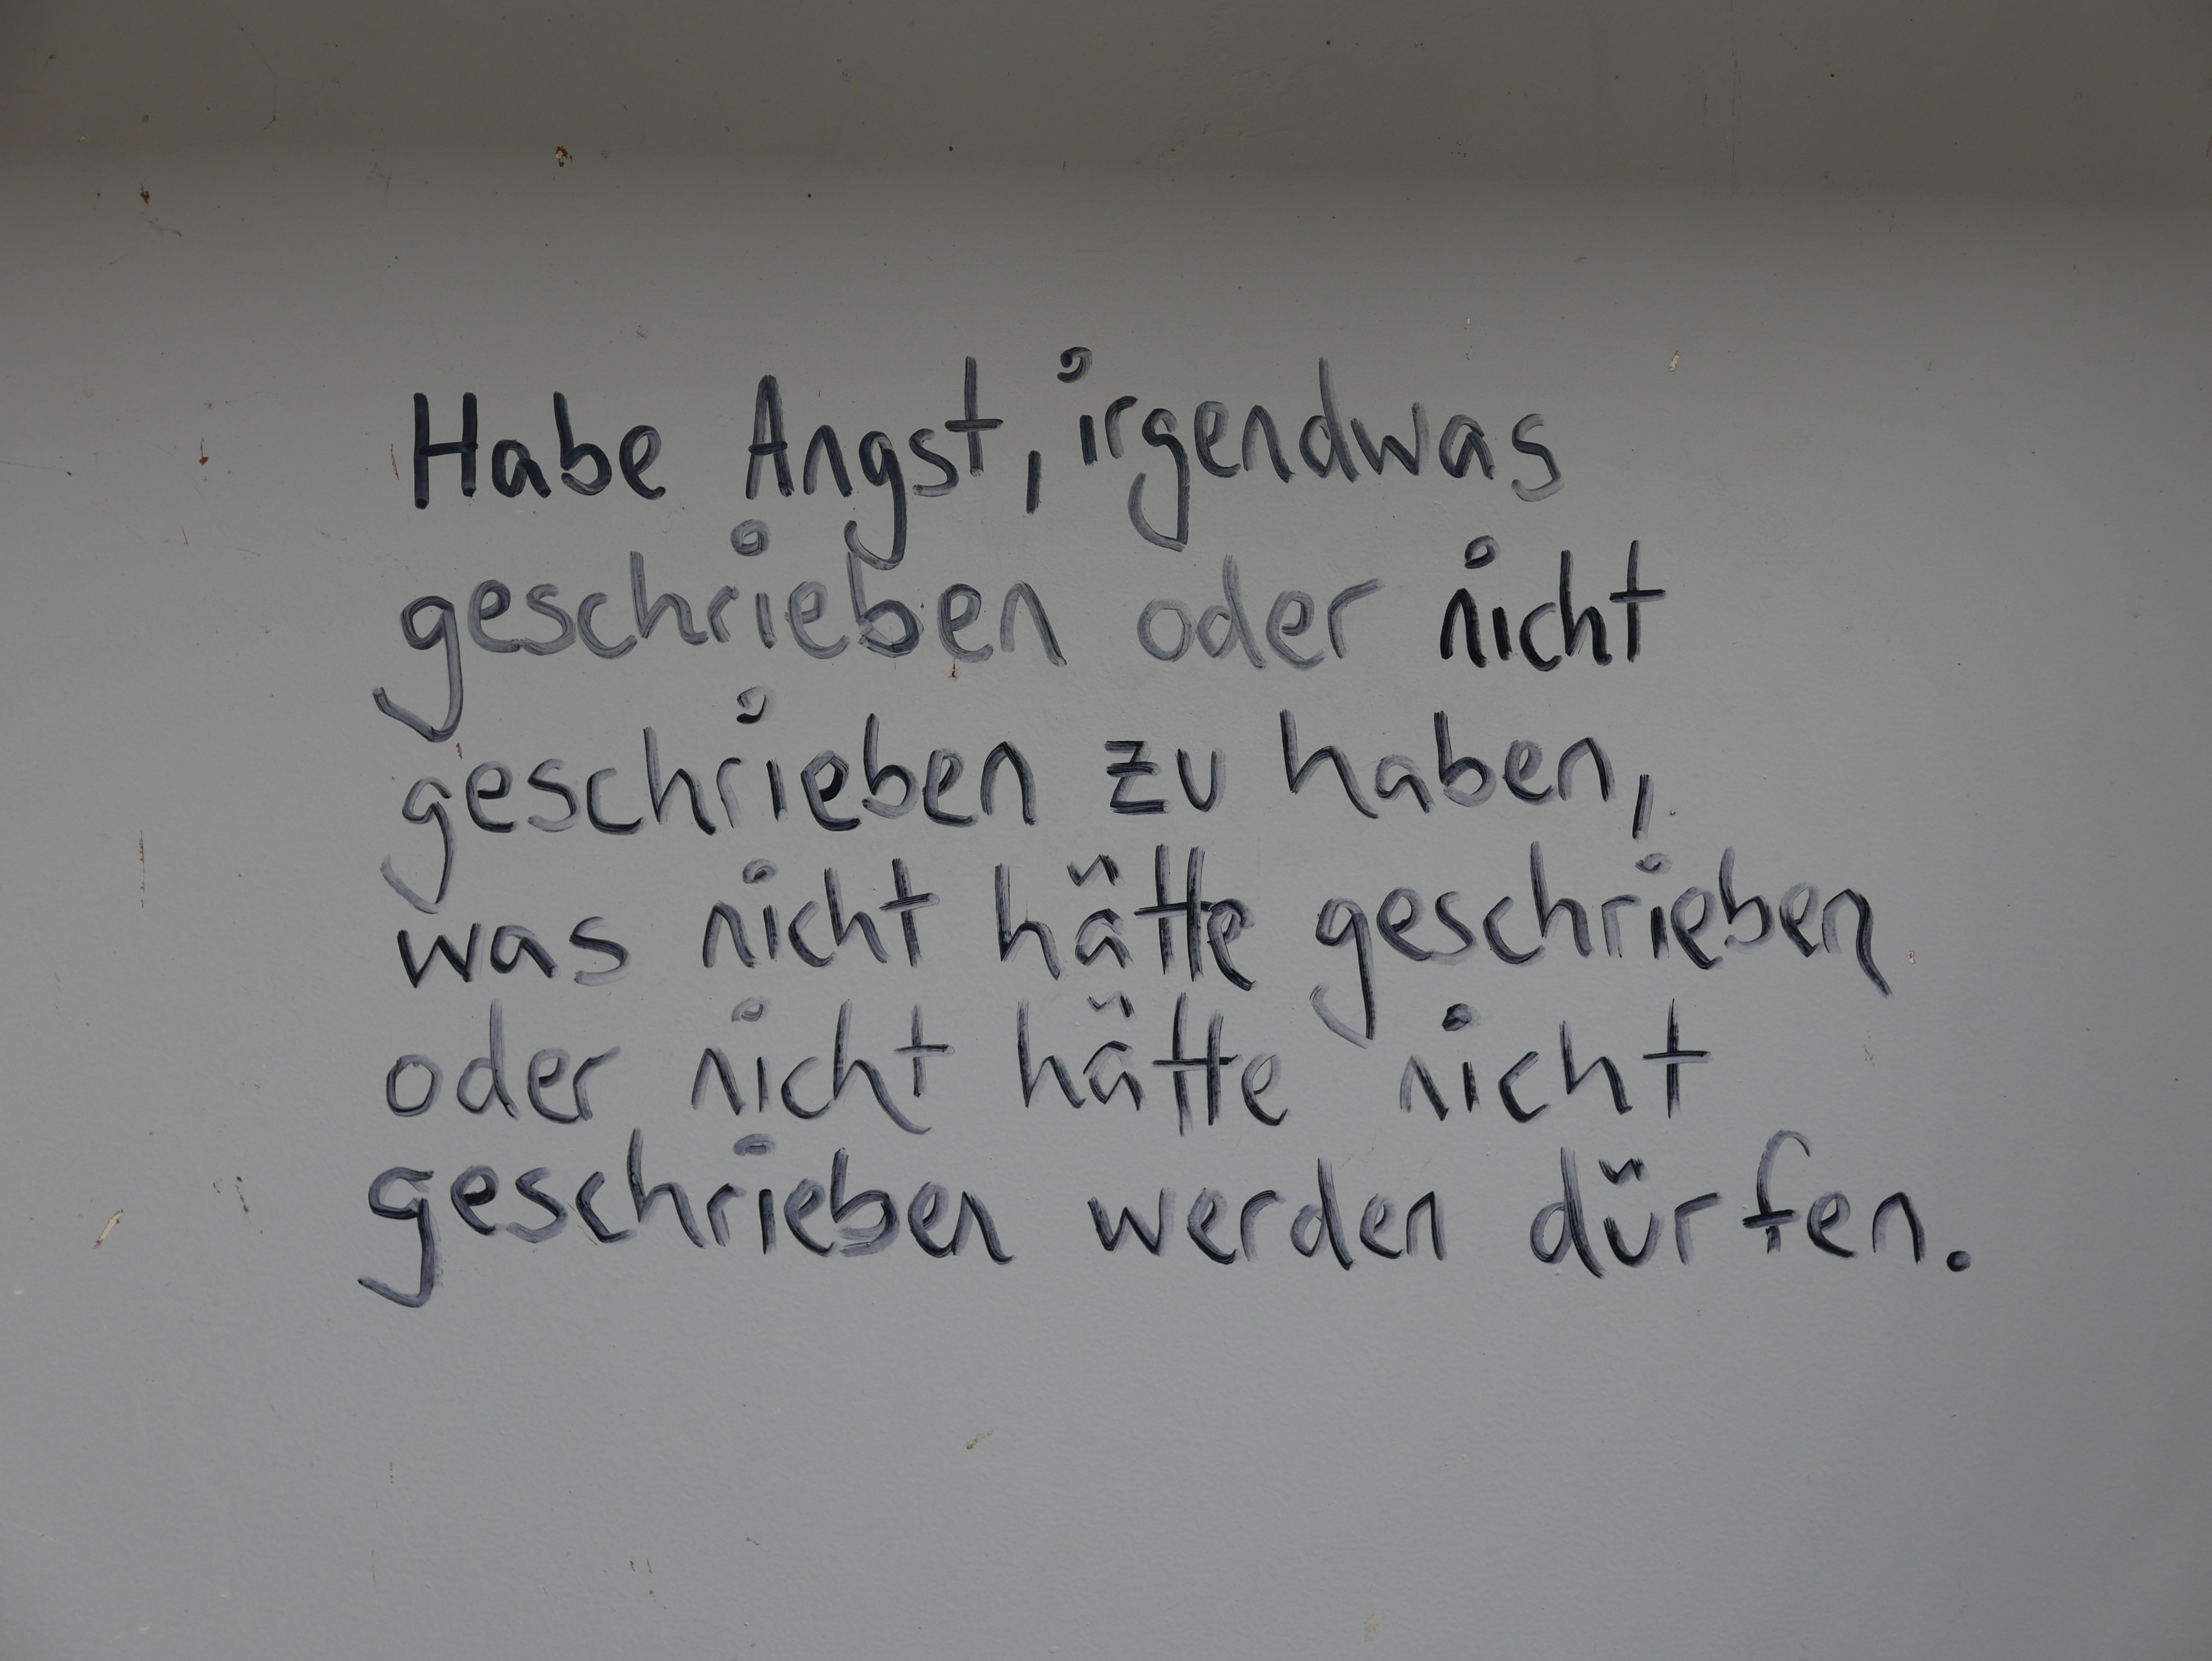 Habe Angst, irgendwas
geschrieben oder nicht
geschrieben zu haben,
was nicht hätte geschrieben
oder nicht hätte nicht
geschrieben werden dürfen.